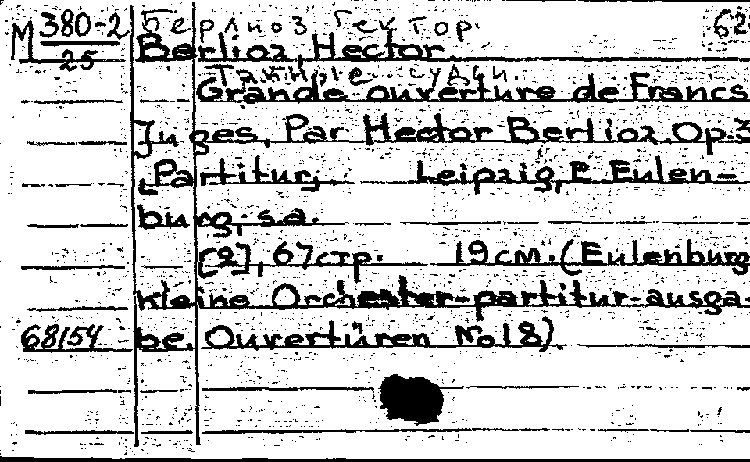 М 380-2/25 Берлиоз Гектор. 62
Berlioz, Hector
Тайные судьи.
Grande ouverture de Francs
Juges, Par Hector Berlioz. Op.3
[Partitur]. Leipzig, E. Eulen-
burg, s.a.
[2], 67 стр. 19 см. (Eulenburg
kleine Orchester-partitur-ausga-
68154 be. Ouvertüren No 18)